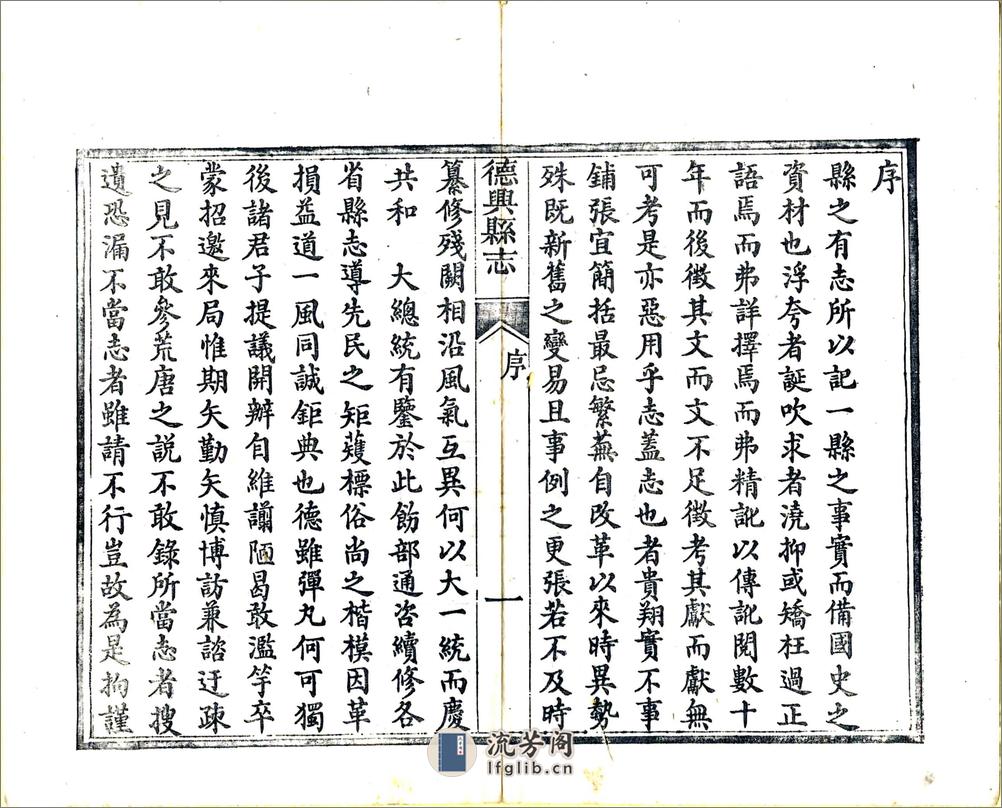 序
縣之有志所以記一縣之事實而備國史之
資材也浮夸者誕吹求者澆抑或矯枉過正
語焉而弗詳擇焉而弗精訛以傳訛閱數十
年而後徵其文而文不足徵考其獻而獻無
可考是亦惡用乎志蓋志也者貴翔實不事
鋪張宜簡括最忌繁蕪自改革以來時異勢
殊既新舊之變易且事例之更張若不及時
德興縣志
序
一
纂修殘闕相沿風氣互異何以大一統而慶
共和 大總統有鑒於此飭部通咨續修各
省縣志導先民之矩矱標俗尚之楷模因革
損益道一風同誠鉅典也德雖彈丸何可獨
後諸君子提議開辦自維謭陋曷敢濫竽卒
蒙招邀來局惟期矢勤矢慎博訪兼諮迂疎
之見不敢參荒唐之説不敢錄所當志者搜
遺恐漏不當志者雖請不行豈故為是拘謹
流芳阁
lfglib.cn